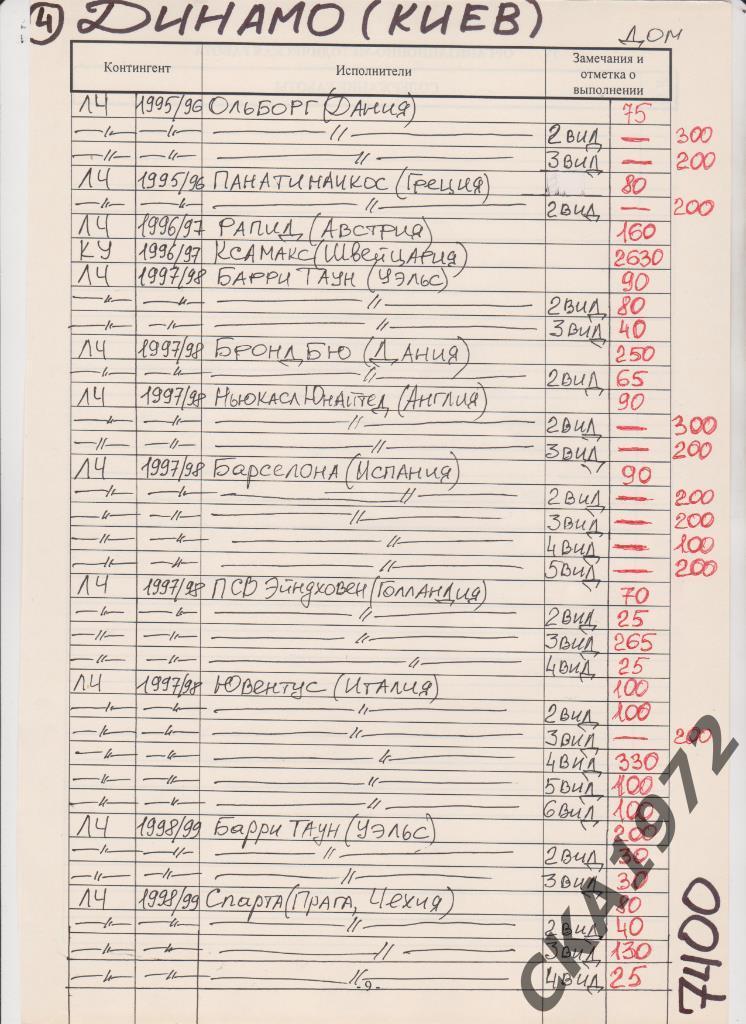 4 ДИНАМО (КИЕВ)
ДОМ
Контингент Исполнители Замечания и отметка о выполнении
ЛЧ 1995/96 ОЛЬБОРГ (ДАНИЯ) 75
—〃— —〃— —〃— 2 ВИД — 300
—〃— —〃— —〃— 3 ВИД — 200
ЛЧ 1995/96 ПАНАТИНАИКОС (ГРЕЦИЯ) 80
—〃— —〃— —〃— 2 ВИД — 200
ЛЧ 1996/97 РАПИД (АВСТРИЯ) 160
КУ 1996/97 КСАМАКС (ШВЕЙЦАРИЯ) 2630
ЛЧ 1997/98 БАРРИ ТАУН (УЭЛЬС) 90
—〃— —〃— —〃— 2 ВИД 80
—〃— —〃— —〃— 3 ВИД 40
ЛЧ 1997/98 БРОНДБЮ (ДАНИЯ) 250
—〃— —〃— —〃— 2 ВИД 65
ЛЧ 1997/98 НЬЮКАСЛ ЮНАЙТЕД (АНГЛИЯ) 90
—〃— —〃— —〃— 2 ВИД — 300
—〃— —〃— —〃— 3 ВИД — 200
ЛЧ 1997/98 БАРСЕЛОНА (ИСПАНИЯ) 90
—〃— —〃— —〃— 2 ВИД — 200
—〃— —〃— —〃— 3 ВИД — 200
—〃— —〃— —〃— 4 ВИД — 100
—〃— —〃— —〃— 5 ВИД — 200
ЛЧ 1997/98 ПСВ ЭЙНДХОВЕН (ГОЛЛАНДИЯ) 70
—〃— —〃— —〃— 2 ВИД 25
—〃— —〃— —〃— 3 ВИД 265
—〃— —〃— —〃— 4 ВИД 25
ЛЧ 1997/98 ЮВЕНТУС (ИТАЛИЯ) 100
—〃— —〃— —〃— 2 ВИД 100
—〃— —〃— —〃— 3 ВИД — 200
—〃— —〃— —〃— 4 ВИД 330
—〃— —〃— —〃— 5 ВИД 100
—〃— —〃— —〃— 6 ВИД 100
ЛЧ 1998/99 БАРРИ ТАУН (УЭЛЬС) 200
—〃— —〃— —〃— 2 ВИД 30
—〃— —〃— —〃— 3 ВИД 30
ЛЧ 1998/99 СПАРТА (ПРАГА, ЧЕХИЯ) 80
—〃— —〃— —〃— 2 ВИД 40
—〃— —〃— —〃— 3 ВИД 130
—〃— —〃— —〃— 4 ВИД 25
-9-
7400
СКА1972